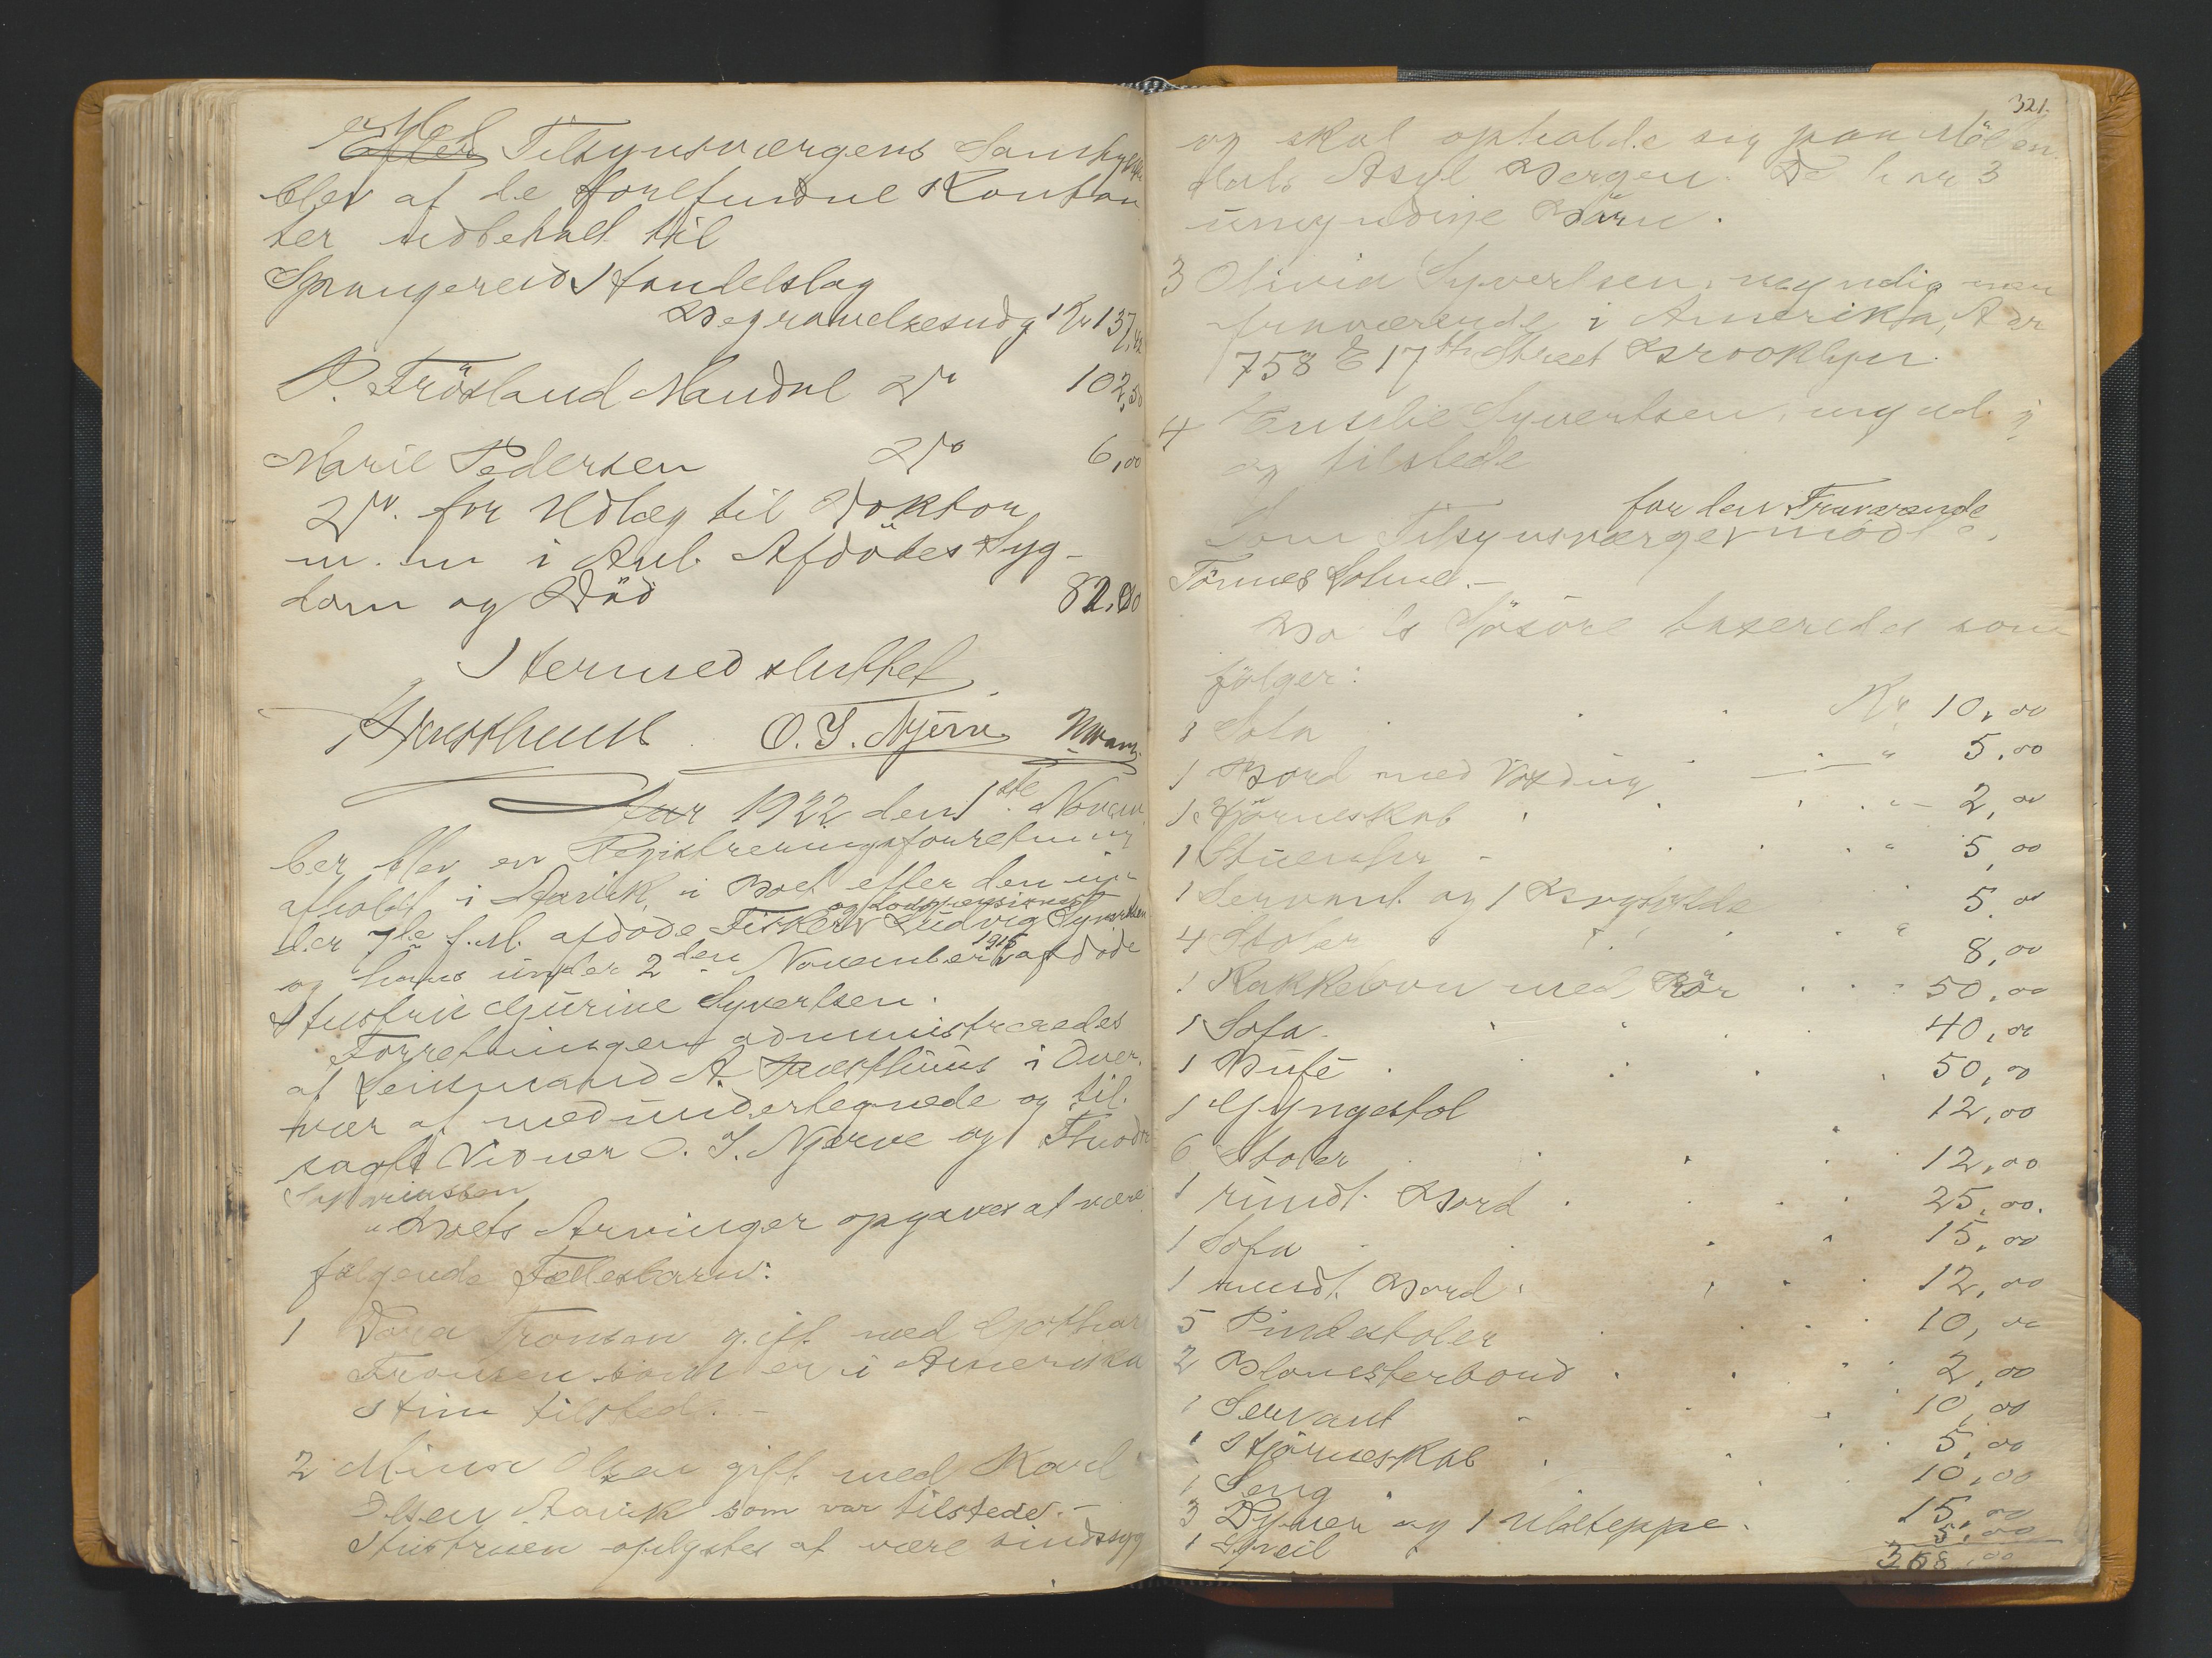 Med
Efter Tilsynsværgens Samtykke
blev af de forefundne Kontan
ter udbetalt til
Spangereid Handelslag
Begravelsesudg Kr 137,42
P. Fröxland Mandal 102,50
Marie Pedersen 6,00
for Udlæg til Doktor
m. m i Anl. Afdödes Syg-
dom og Död 82.00
Hermed sluttet
O. J. Njerve
Aar 1922 den 1ste Novem
ber blev en Registreringsforretning
afholdt i Aavik, i Boet efter den un-
og Lodspensionist
der 7de f. M. afdöde Fisker Ludvig Syvertsen
1915
og hans under 2den November afdöde
Hustru Gurine Syvertsen.
Forretningen administreredes
af Lensmand A. Aasthuus i Over-
vær af medundertegnede og til-
sagte Vidner O. J. Njerve og Theodor
Boets Arvinger opgaves at være
følgende Fællesbarn:
1 Dora Tronsen gift med Gothar
Tronsen som er i Amerika
Hun tilstede. -
2 Mina Olsen gift med Karl
Olsen Aavik som var tilstede. -
Hustruen oplystes at være sindssyg
321.
og skal opholde sig paa Möllen
dals Asyl Bergen. De har 3
umyndige Børn.
3 Olivia Syvertsen, myndig men
fraværende i Amerika, Adr
758 E 17th Street Brooklyn.
4 Emilie Syvertsen, myndig
og tilstede
for den Fraværende
Som Tilsynsværge mödte
Tönnes Holme. -
Bo ts Lösöre taxeredes som
fölger:
1 Sofa Kr. 10,00
1 Bord med Voxdug " 5,00
1 Hjörneskab " 2,00
1 Stueuhr " 5,00
1 Servant og 1 5.00
4 Stoler " 8,00
1 Kakkelovn med Rör 50,00
1 Sofa 40,00
1 Bufe 50,00
1 Gyngestol 12,00
6 Stoler 12,00
1 rundt Bord 25,00.
1 Sofa 15,00
1 rundt Bord 12,00
5 Pindestoler 10,00
2 Blomsterbord 2,00
1 Servant 10,00
1 Hjörneskab 5,00
1 Seng 10,00
3 Dyner og 1 Uldteppe 15,00
1 Speil 5,00
308,00